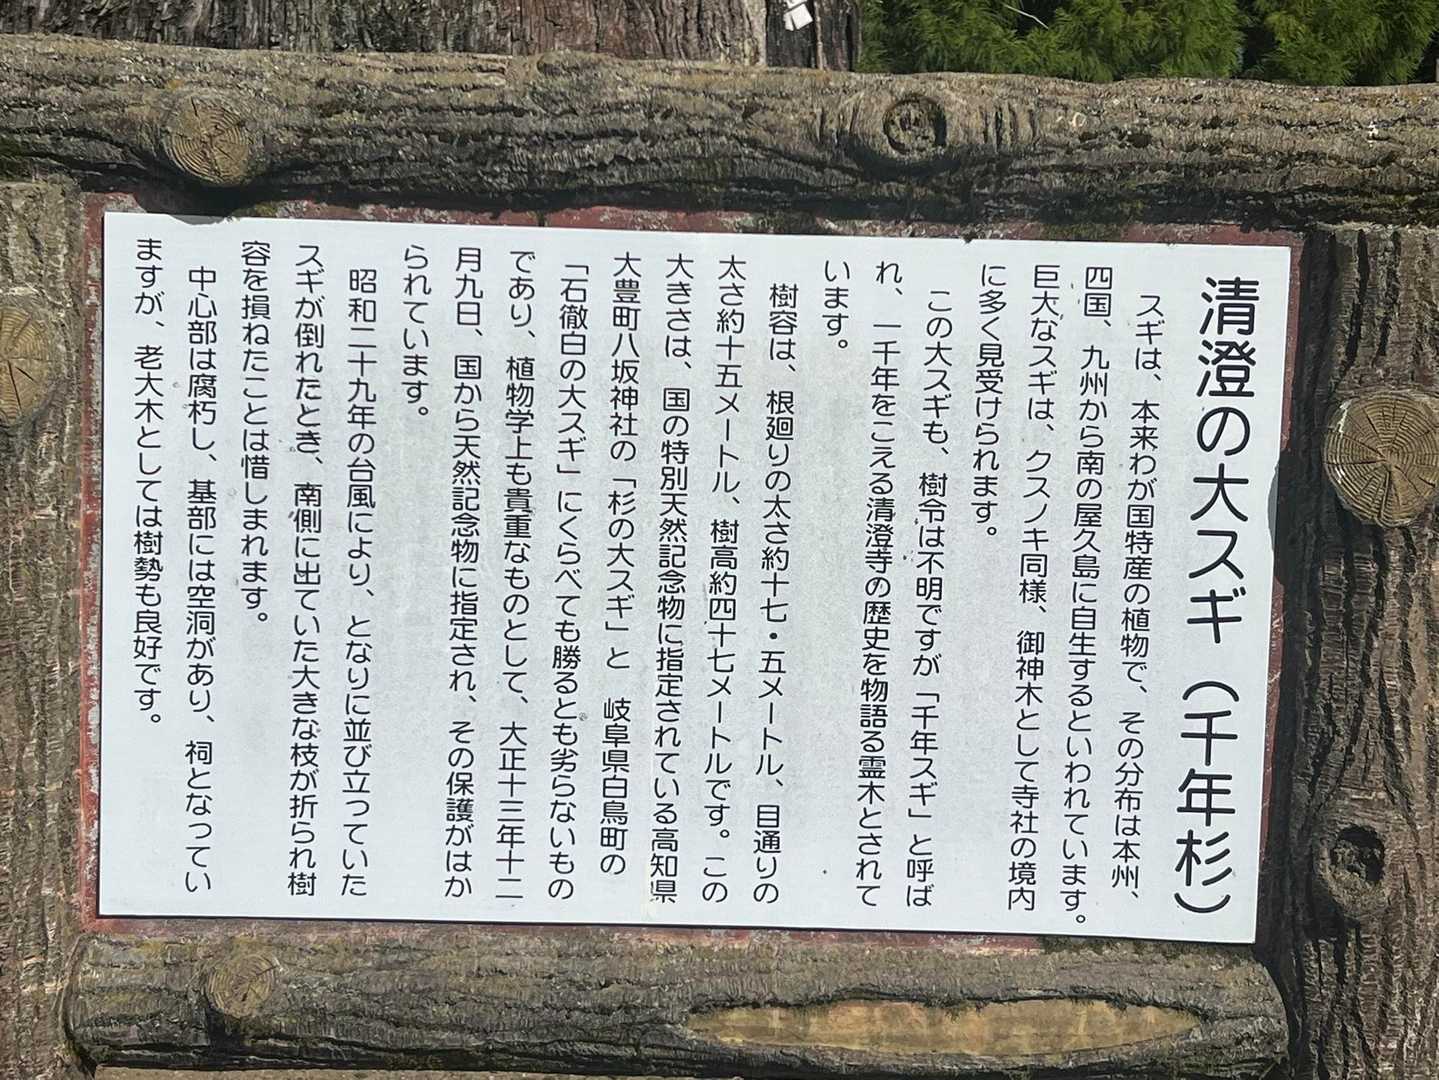 清澄の大スギ（千年杉）
スギは、本来わが国特産の植物で、その分布は本州、
四国、九州から南の屋久島に自生するといわれています。
巨大なスギは、クスノキ同様、御神木として寺社の境内
に多く見受けられます。
この大スギも、樹令は不明ですが「千年スギ」と呼ば
れ、一千年をこえる清澄寺の歴史を物語る霊木とされて
います。
樹容は、根廻りの太さ約十七・五メートル、目通りの
太さ約十五メートル、樹高約四十七メートルです。この
大きさは、国の特別天然記念物に指定されている高知県
大豊町八坂神社の「杉の大スギ」と　岐阜県白鳥町の
「石徹白の大スギ」にくらべても勝るとも劣らないもの
であり、植物学上も貴重なものとして、大正十三年十二
月九日、国から天然記念物に指定され、その保護がはか
られています。
昭和二十九年の台風により、となりに並び立っていた
スギが倒れたとき、南側に出ていた大きな枝が折られ樹
容を損ねたことは惜しまれます。
中心部は腐朽し、基部には空洞があり、祠となってい
ますが、老大木としては樹勢も良好です。